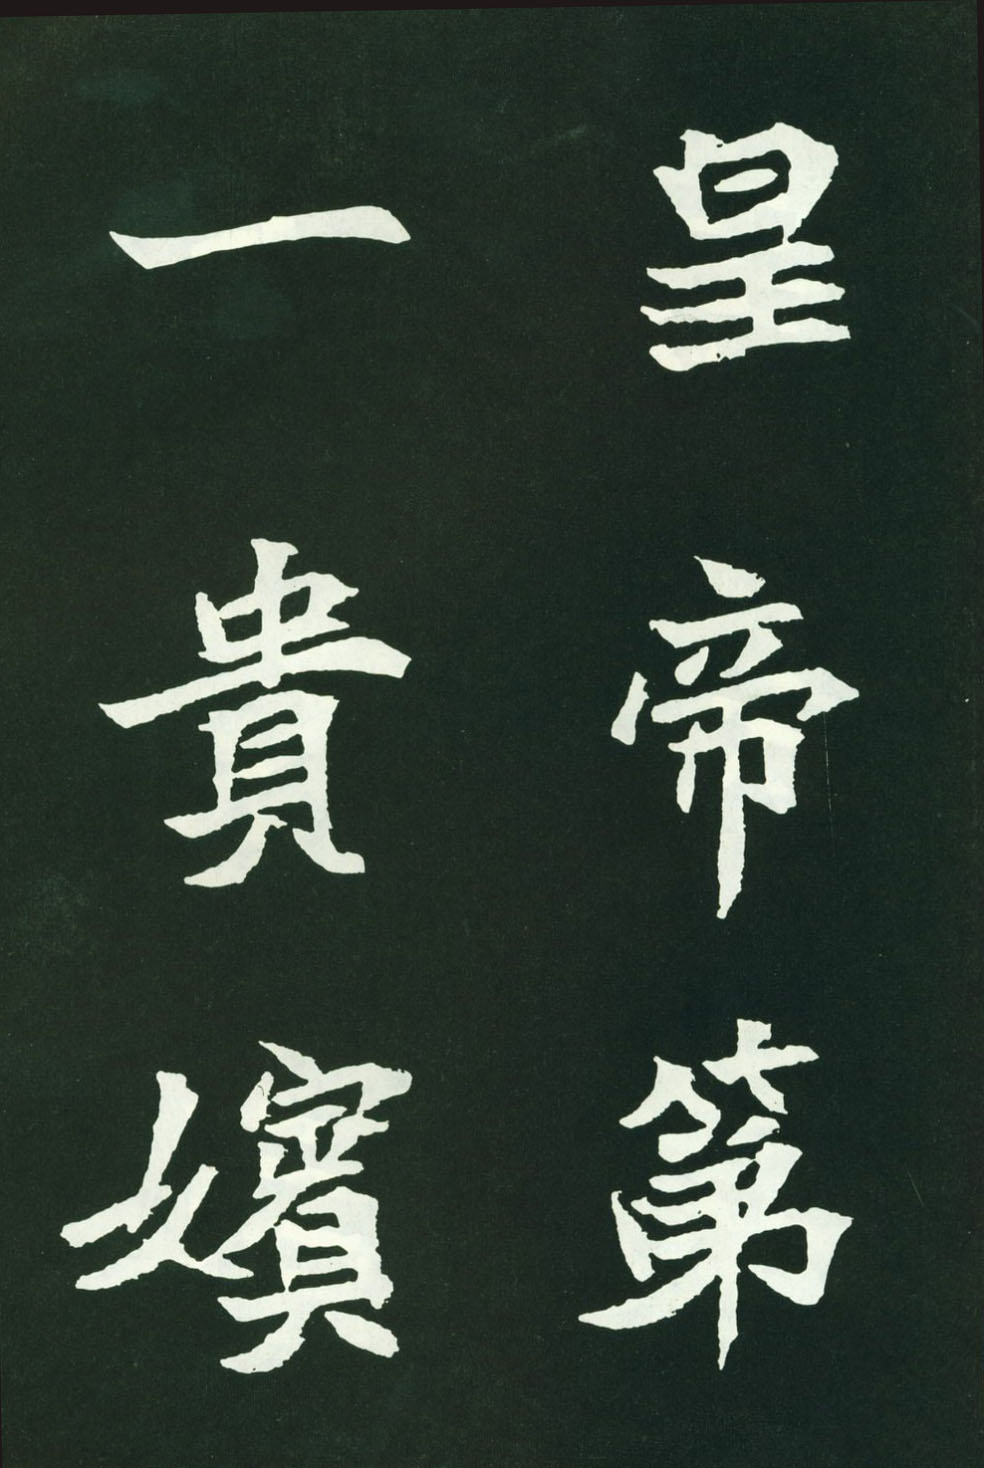 皇帝第
一貴嬪